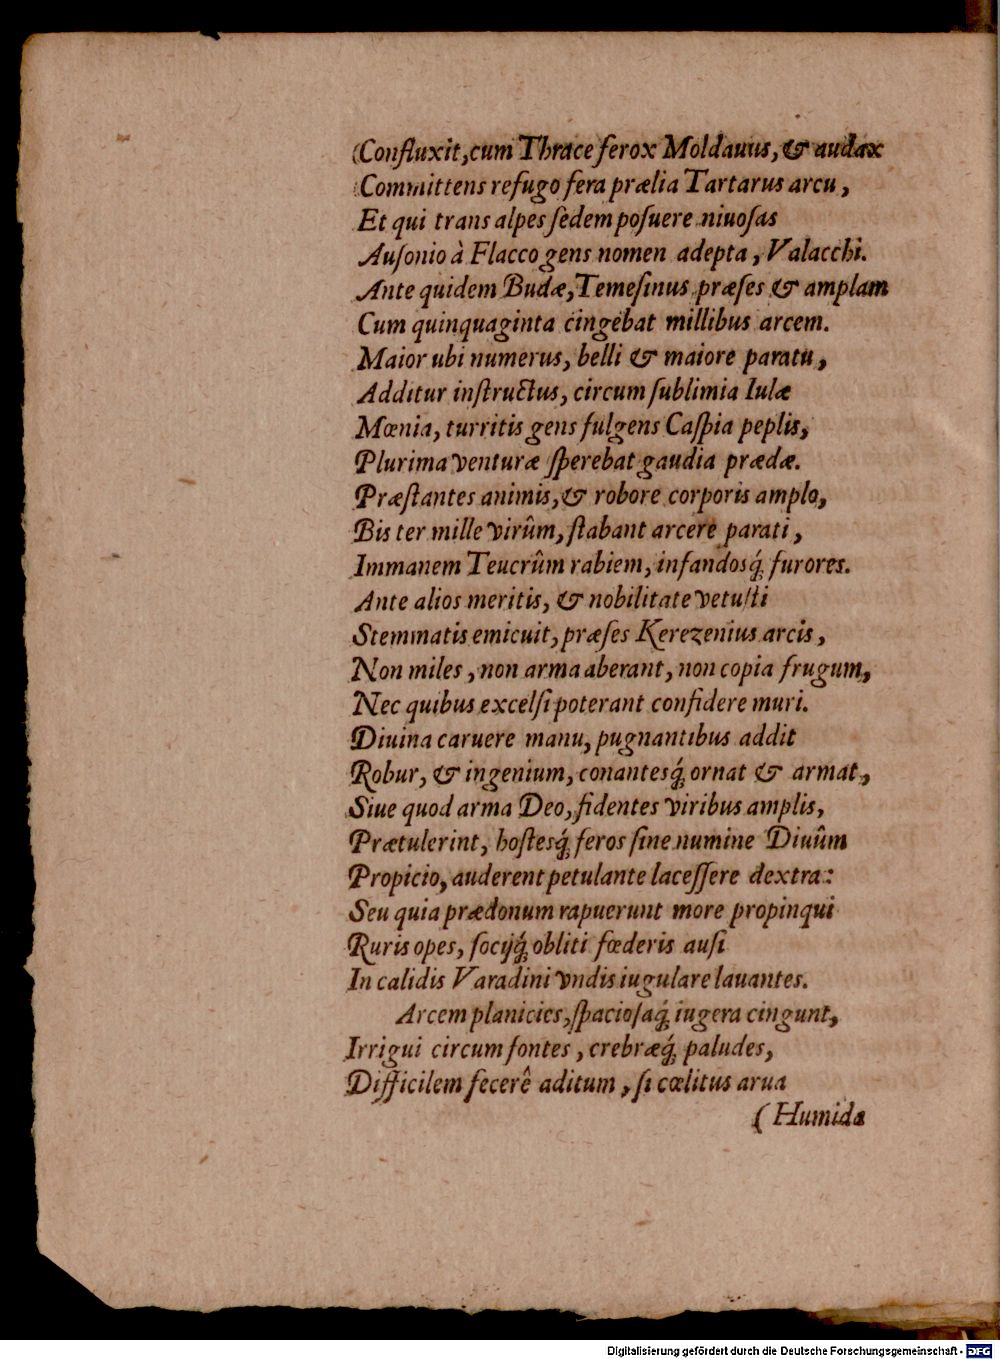 (Confluxit, cum Thrace ferox Moldauus, & audax
(Committens refugo fera prælia Tartarus arcu,
Et qui trans alpes ſedem poſuere niuoſas
Auſonio à Flacco gens nomen adepta, Valacchi.
Ante quidem Budæ, Temeſinus præſes & amplam
Cum quinquaginta cingebat millibus arcem.
Maior ubi numerus, belli & maiore paratu,
Additur inſtructus, circum ſublimia Iulæ
Mœnia, turritis gens fulgens Caſpia peplis,
Plurima venturæ ſperebat gaudia prædæ.
Præſtantes animis, & robore corporis amplo,
Bis ter mille virûm, ſtabant arcere parati,
Immanem Teucrûm rabiem, infandosq́; furores.
Ante alios meritis, & nobilitate vetuſti
Stemmatis emicuit, præſes Kerezenius arcis,
Non miles, non arma aberant, non copia frugum,
Nec quibus excelſi poterant confidere muri.
Diuina caruere manu, pugnantibus addit
Robur, & ingenium, conantesq́; ornat & armat,
Siue quod arma Deo, fidentes viribus amplis,
Prætulerint, hoſtesq́; feros ſine numine Diuûm
Propicio, auderent petulante laceſſere dextra:
Seu quia prædonum rapuerunt more propinqui
Ruris opes, ſocijq́; obliti fœderis auſi
In calidis Varadini vndis iugulare lauantes.
Arcem planicies, ſpacioſaq́; iugera cingunt,
Irrigui circum fontes, crebræq́; paludes,
Difficilem fecerê aditum, ſi cœlitus arua
(Humida
Digitalisierung gefördert durch die Deutsche Forschungsgemeinschaft - DFG